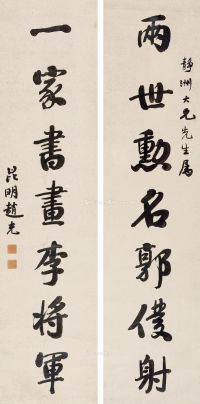 靜洲大兄先生屬
兩世勳名郭僕射
一家書畫李將軍
昆明趙光